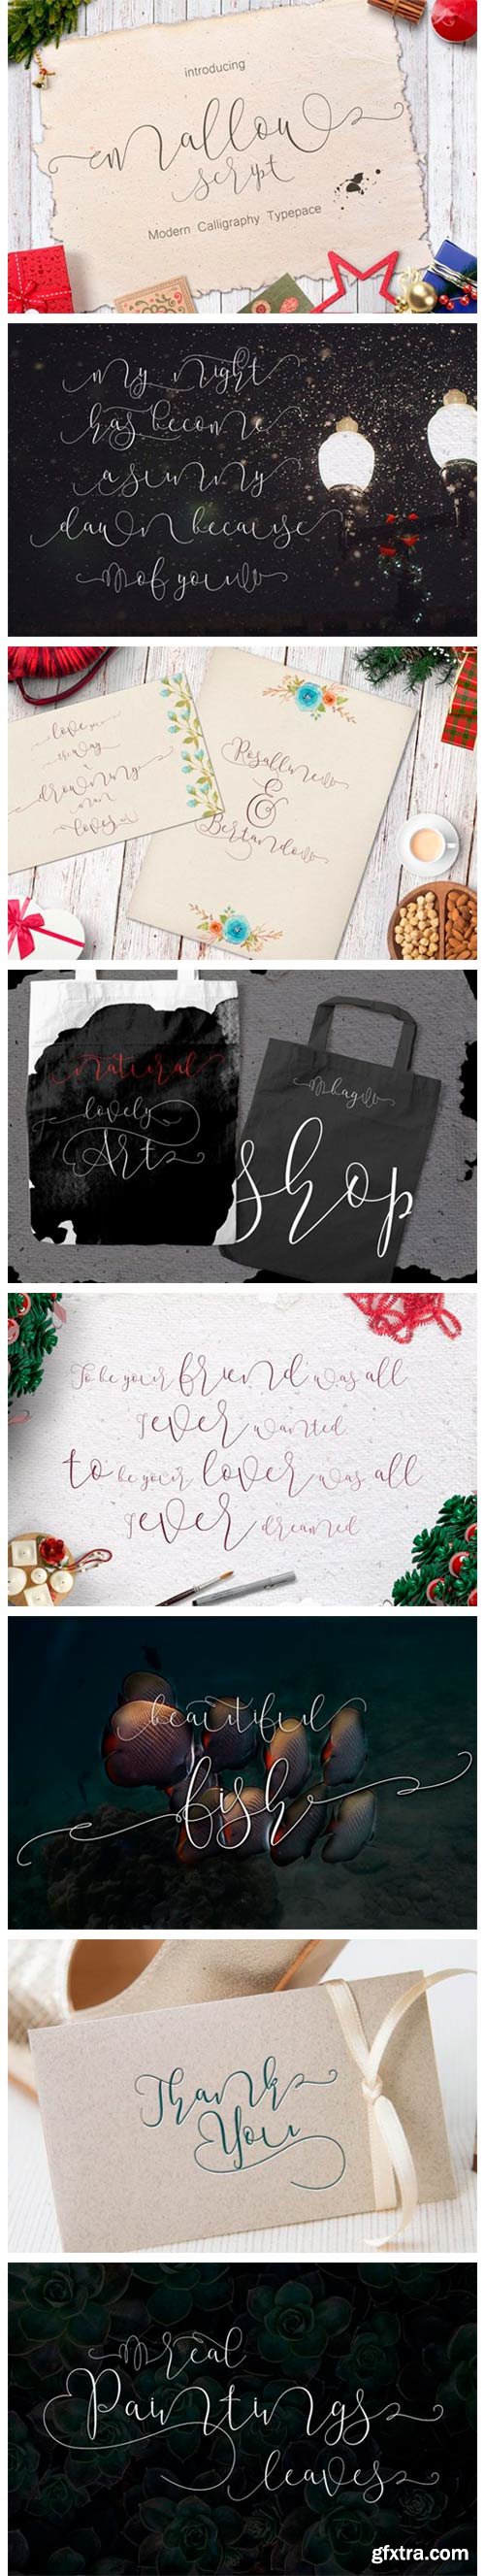 introducing
mallow
script
Modern Calligraphy Typepace
my night
has become
a sunny
dawn because
of you
love
is way
a
drowning
man
loves
Rosalline
&
Bertando
natural
lovely
Art
bag
Shop
To be your friend was all
I ever wanted
to be your lover was all
I ever dreamed
beautiful
fish
Thank
You
real
Paintings
leaves
gfxtra.com